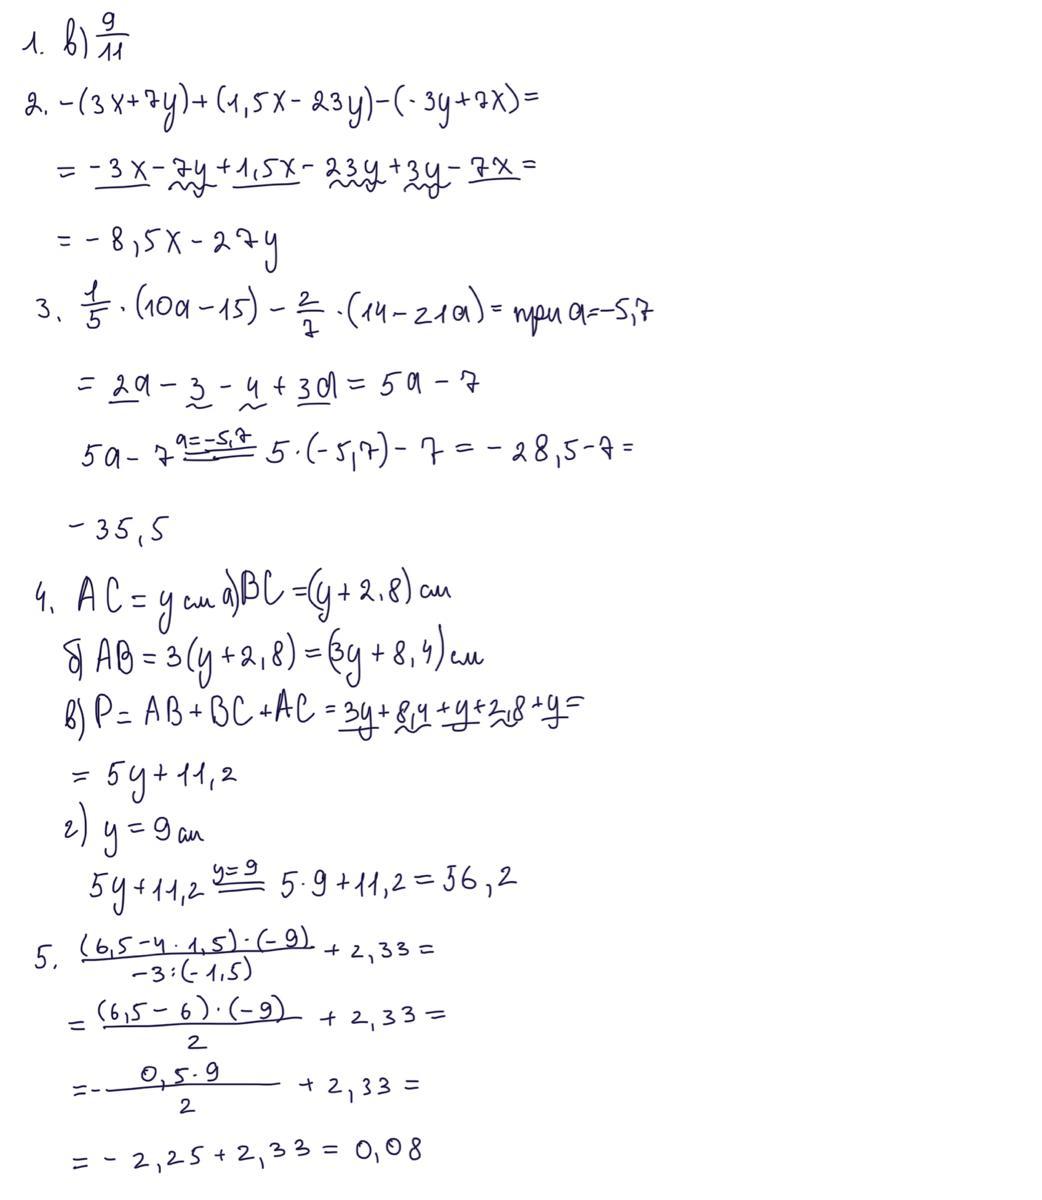 1. в) 9/11
2. -(3x+7y)+(1,5x-23y)-(-3y+7x)=
= -3x-7y+1,5x-23y+3y-7x=
= -8,5x-27y
3. 1/5 · (10a-15) - 2/7 · (14-21a)= при a=-5,7
= 2a-3-4+3a = 5a-7
5a-7 a=-5,7 = 5·(-5,7)-7 = -28,5-7=
-35,5
4. AC = y см а) BC =(y+2,8) см
б) AB = 3(y+2,8) = (3y+8,4) см
в) P = AB+BC+AC = 3y+8,4+y+2,8+y=
= 5y+11,2
г) y = 9 см
5y+11,2 y=9 = 5·9+11,2 = 56,2
5. (6,5-4·1,5)·(-9)/-3:(-1,5) + 2,33 =
= (6,5-6)·(-9)/2 + 2,33 =
= - 0,5·9/2 + 2,33 =
= - 2,25+2,33 = 0,08